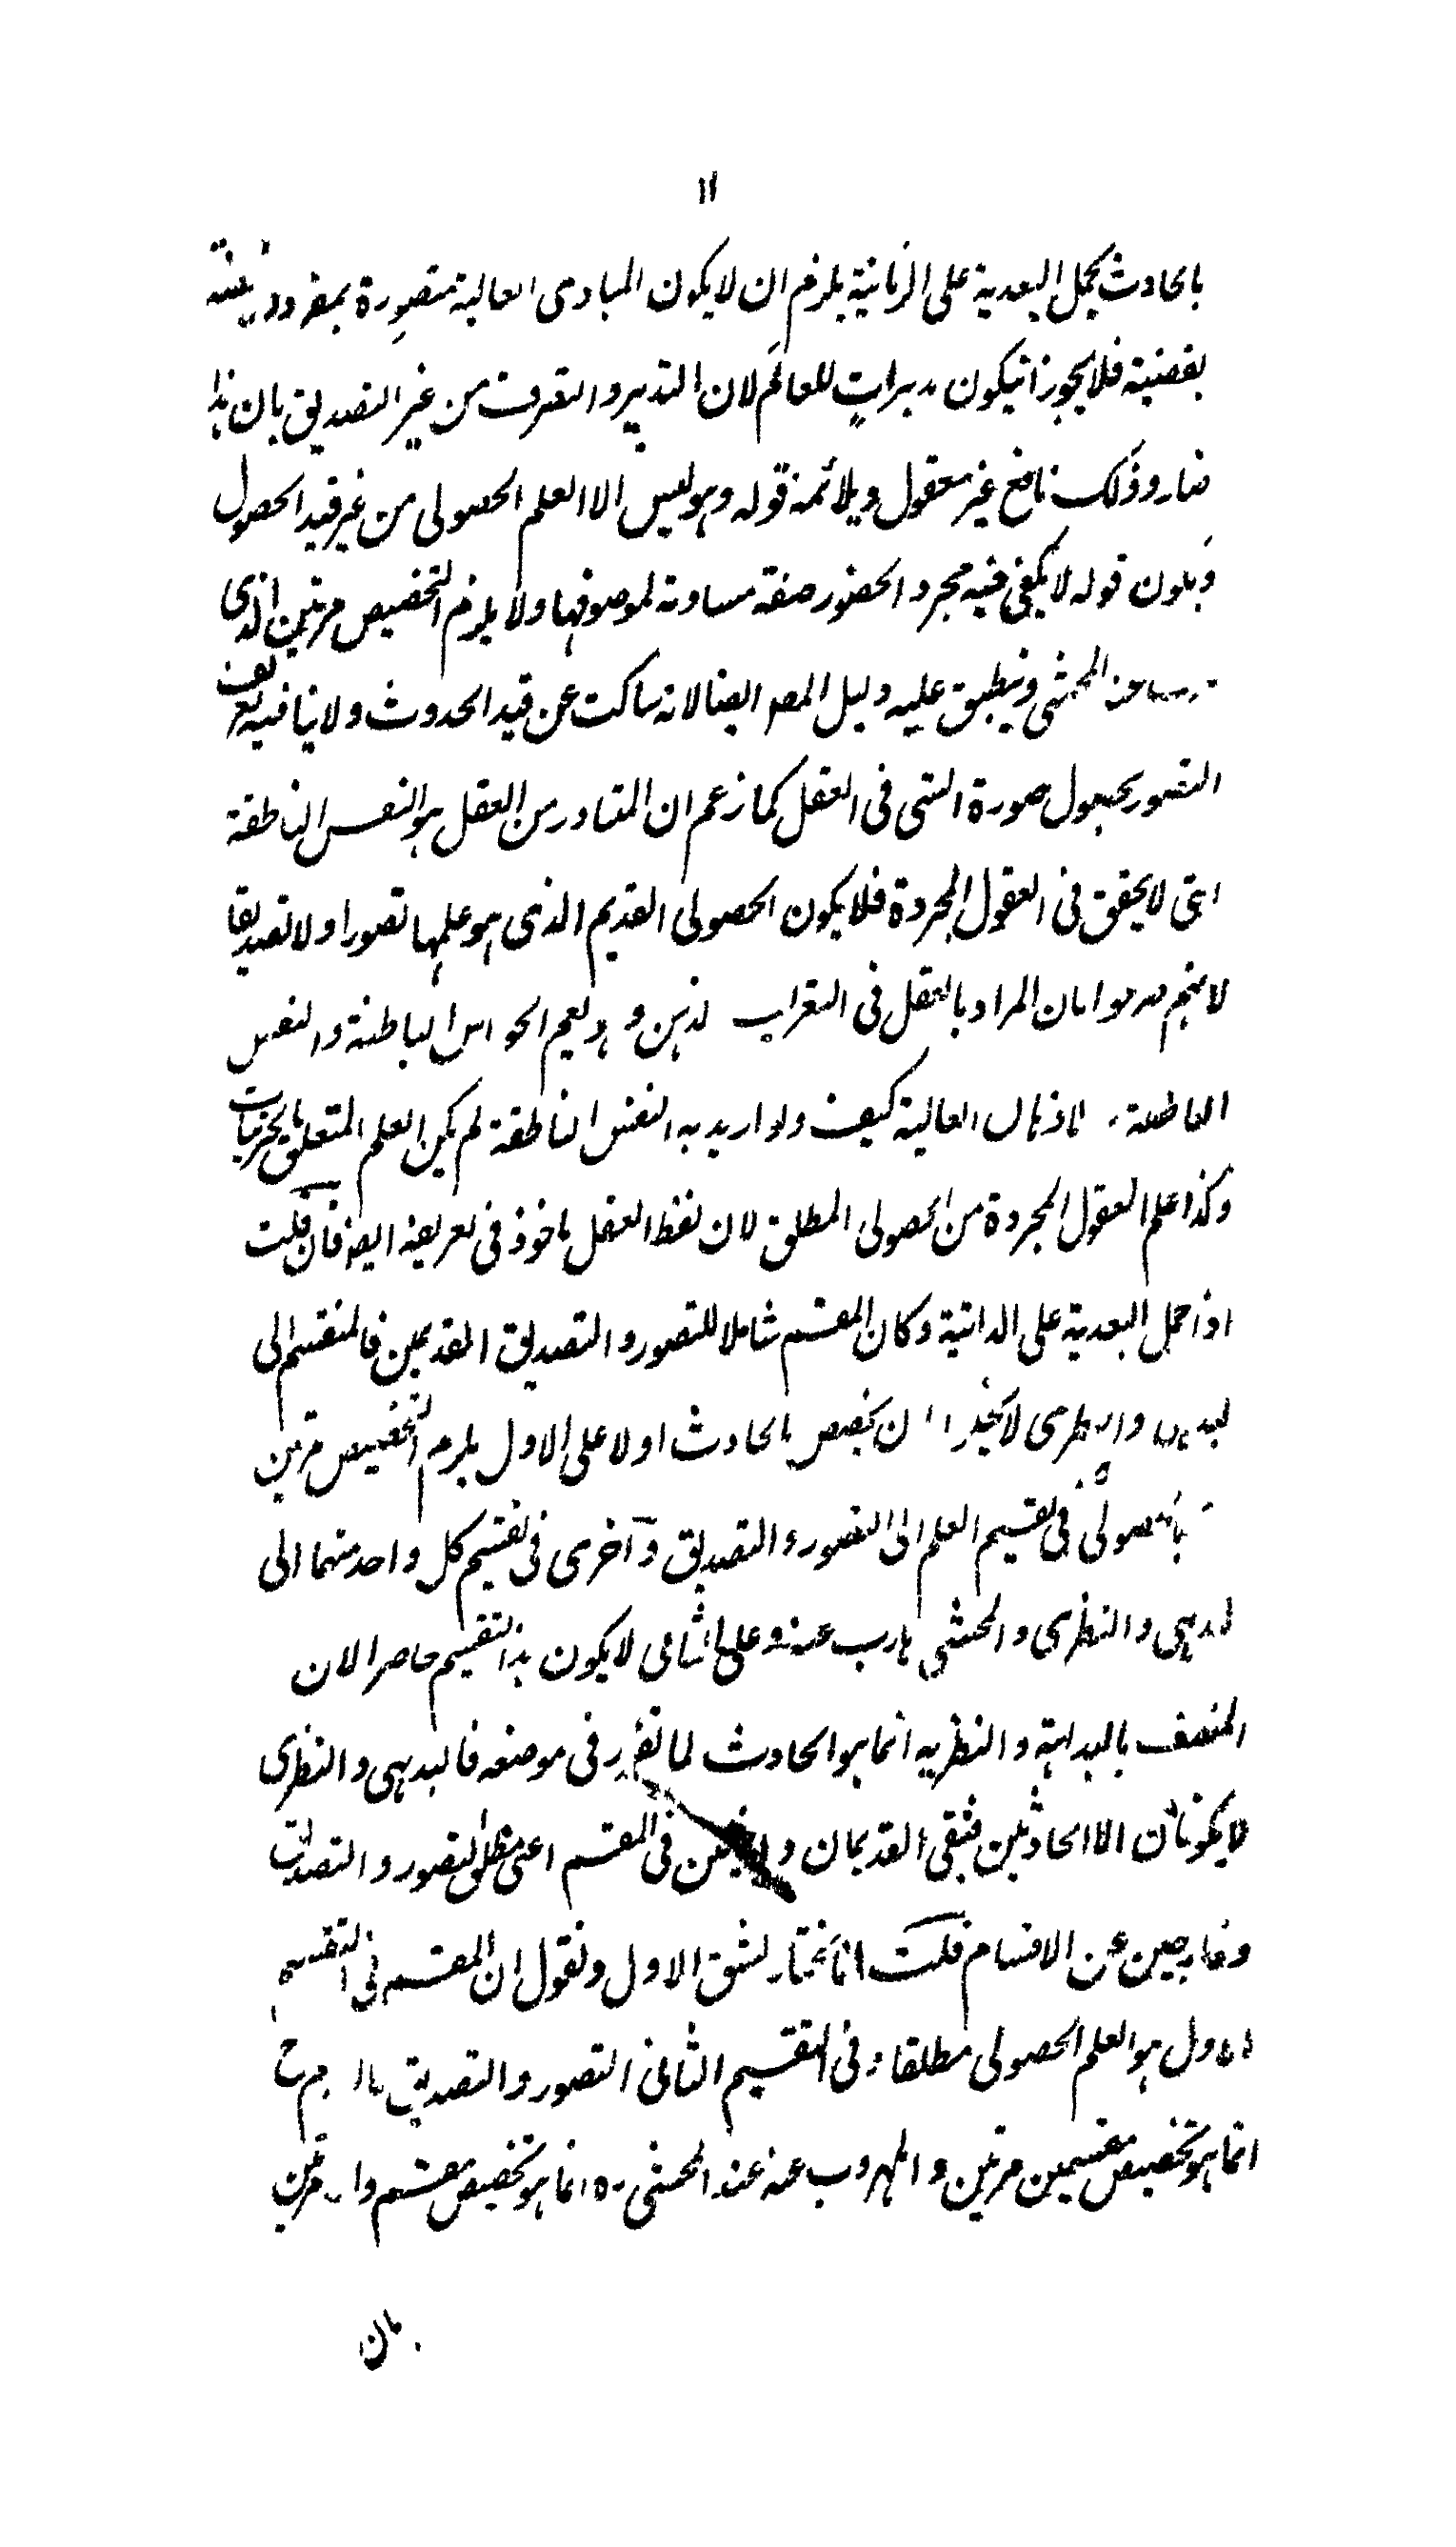 ١١
بالحادث بحمل البعدية على الزمانية يلزم ان لا يكون المبادى العالية متصورة بمفرد
بقضية فلا يجوز انيكون مدبراتٍ للعالَم لان التدبير والتصرف من غير التصديق بان هذا
ضار وذلك نافع غير معقول ويلائمه قوله وهو ليس الا العلم الحصولى من غير قيد الحصول
قوله لا يكفى فيه مجرد الحضور صفة مساوتة لموصوفها ولا يلزم التخصيص مرتين الذى
المحشى وينطبق عليه دليل المصـ ايضا لانه ساكت عن قيد الحدوث ولا ينافيه تعريف
التصور بحصول صورة الشى فى العقل كما زعم ان المتبادر من العقل هو النفس الناطقة
التى لا يتحقق فى العقول المجردة فلا يكون الحصولى القديم الذى هو علمها تصورا ولا تصديقا
لانهم صرحوا بان المراد بالعقل فى التعريف الذهن وهو يعم الحواس الباطنة والنفس
الناطقة الاذهان العالية كيف ولو اريد به النفس الناطقة لم يكن العلم المتعلق بالجزئيات
وكذا علم العقول المجردة من الحصولى المطلق لان لفظ العقل ماخوذ فى تعريفه ايضـ فان قلت
اذا حمل البعدية على الذاتية وكان المقسم شاملا للتصور والتصديق القديمين فالمنقسم الى
البديهى والنظرى لا يخلو ان يخصص بالحادث اولا على الاول يلزم التخصيص مرتين
بالحصولى فى تقسيم العلم الى التصور والتصديق وآخرى فى تقسيم كل واحد منهما الى
البديهى والنظرى والمحشى هارب عنه وعلى الثانى لا يكون هذا التقسيم حاصرا لان
المتصف بالبداهة والنظريه انما هو الحادث لما تقرر فى موضعه فالبديهى والنظرى
لا يكونان الا الحادثين فبقى القديمان داخلين فى المقسم اعنى مطلق التصور والتصديق
وخارجين عن الاقسام قلت انا نختار لشق الاول ونقول ان المقسم فى التقسيم
الاول هو العلم الحصولى مطلقا وفى التقسيم الثانى التصور والتصديق
انما هو تخصيص مقسمين مرتين والمهروب عنه عند المحشى ره انما هو تخصيص مقسم واحد مرتين